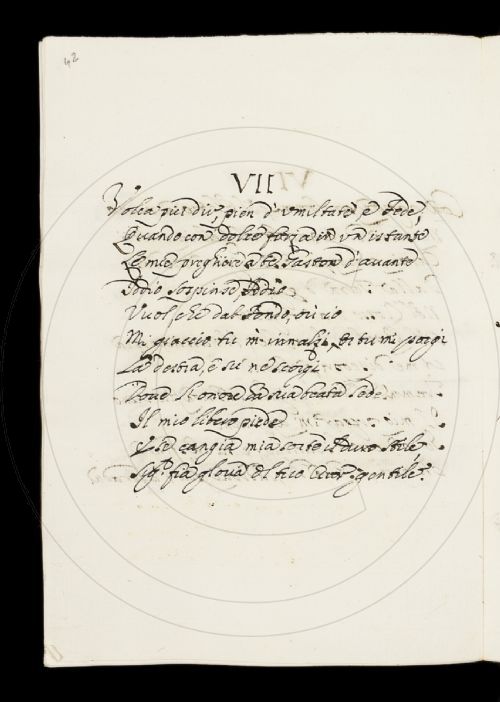 42
VII
Volea piu dir, pien d' umiltate, e fede,
Quando con dolce forza in un istante
Le mie preghiere a te davante
Iddio sospinse
Vuol, che dal fondo, ov' io
Mi giaccio, tu m' innalzi, e tu mi porgi
La destra, e se ne scorgi
Dove si onora la sua beata sede
Il mio libero piede
E se cangia mia sorte stile
Sigr. fia gloria del tuo Cuor gentile.